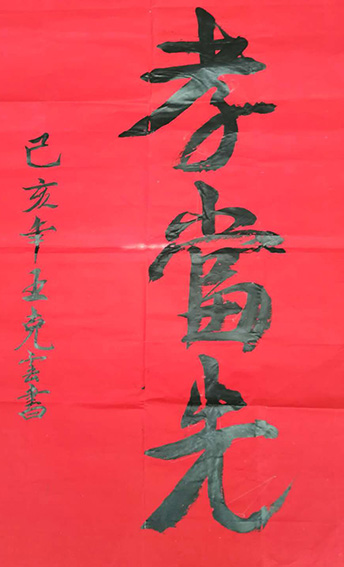 孝當先
己亥年王克云書